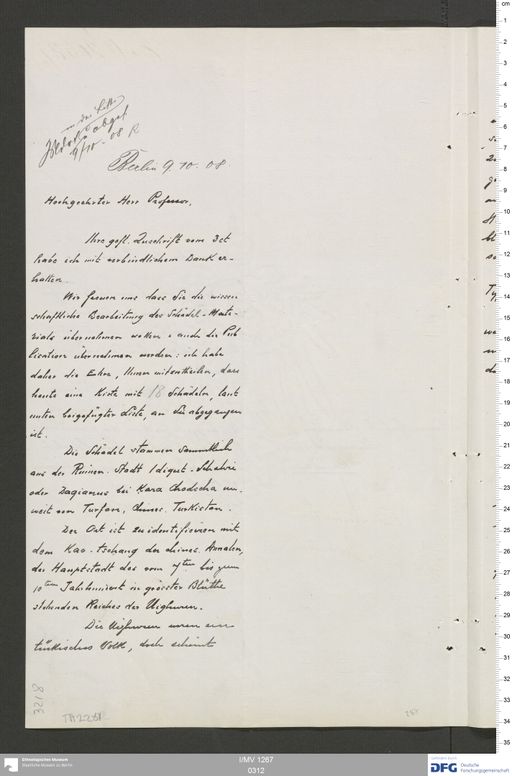 in der Liste
abges.
9/10. 08 R
Berlin 9. 10. 08.
Hochgeehrter Herr Professor,
Ihre gefl. Zuschrift vom 3ct
habe ich mit verbindlichem Dank er-
halten.
Wir freuen uns dass Sie die wissen
schaftliche Bearbeitung des Schädel-Mate-
riales übernehmen wollen u. auch die Pub
lication übernehmen werden: ich habe
daher die Ehre, Ihnen mitzutheilen, dass
heute eine Kiste mit 18 Schädeln, laut
unten beigefügter Liste, an Sie abgegangen
ist.
Die Schädel stammen sammtlich
aus der Ruinen-Stadt Idiqut-Schahri
oder Dagianus bei Kara Chodscha un-
weit von Turfan, Chines. Turkistan.
Der Ort ist zu identifizieren mit
dem Kao-tschang der chines. Annalen,
der Hauptstadt des vom 7ten bis zum
10ten Jahrhundert in grösster Blüthe
stehenden Reiches der Uighuren.
Die Uighuren waren ein
türkisches Volk, doch scheint
3218
TA 2251
I/MV 1267
0312
Ethnologisches Museum
Staatliche Museen zu Berlin
DFG Deutsche
Forschungsgemeinschaft